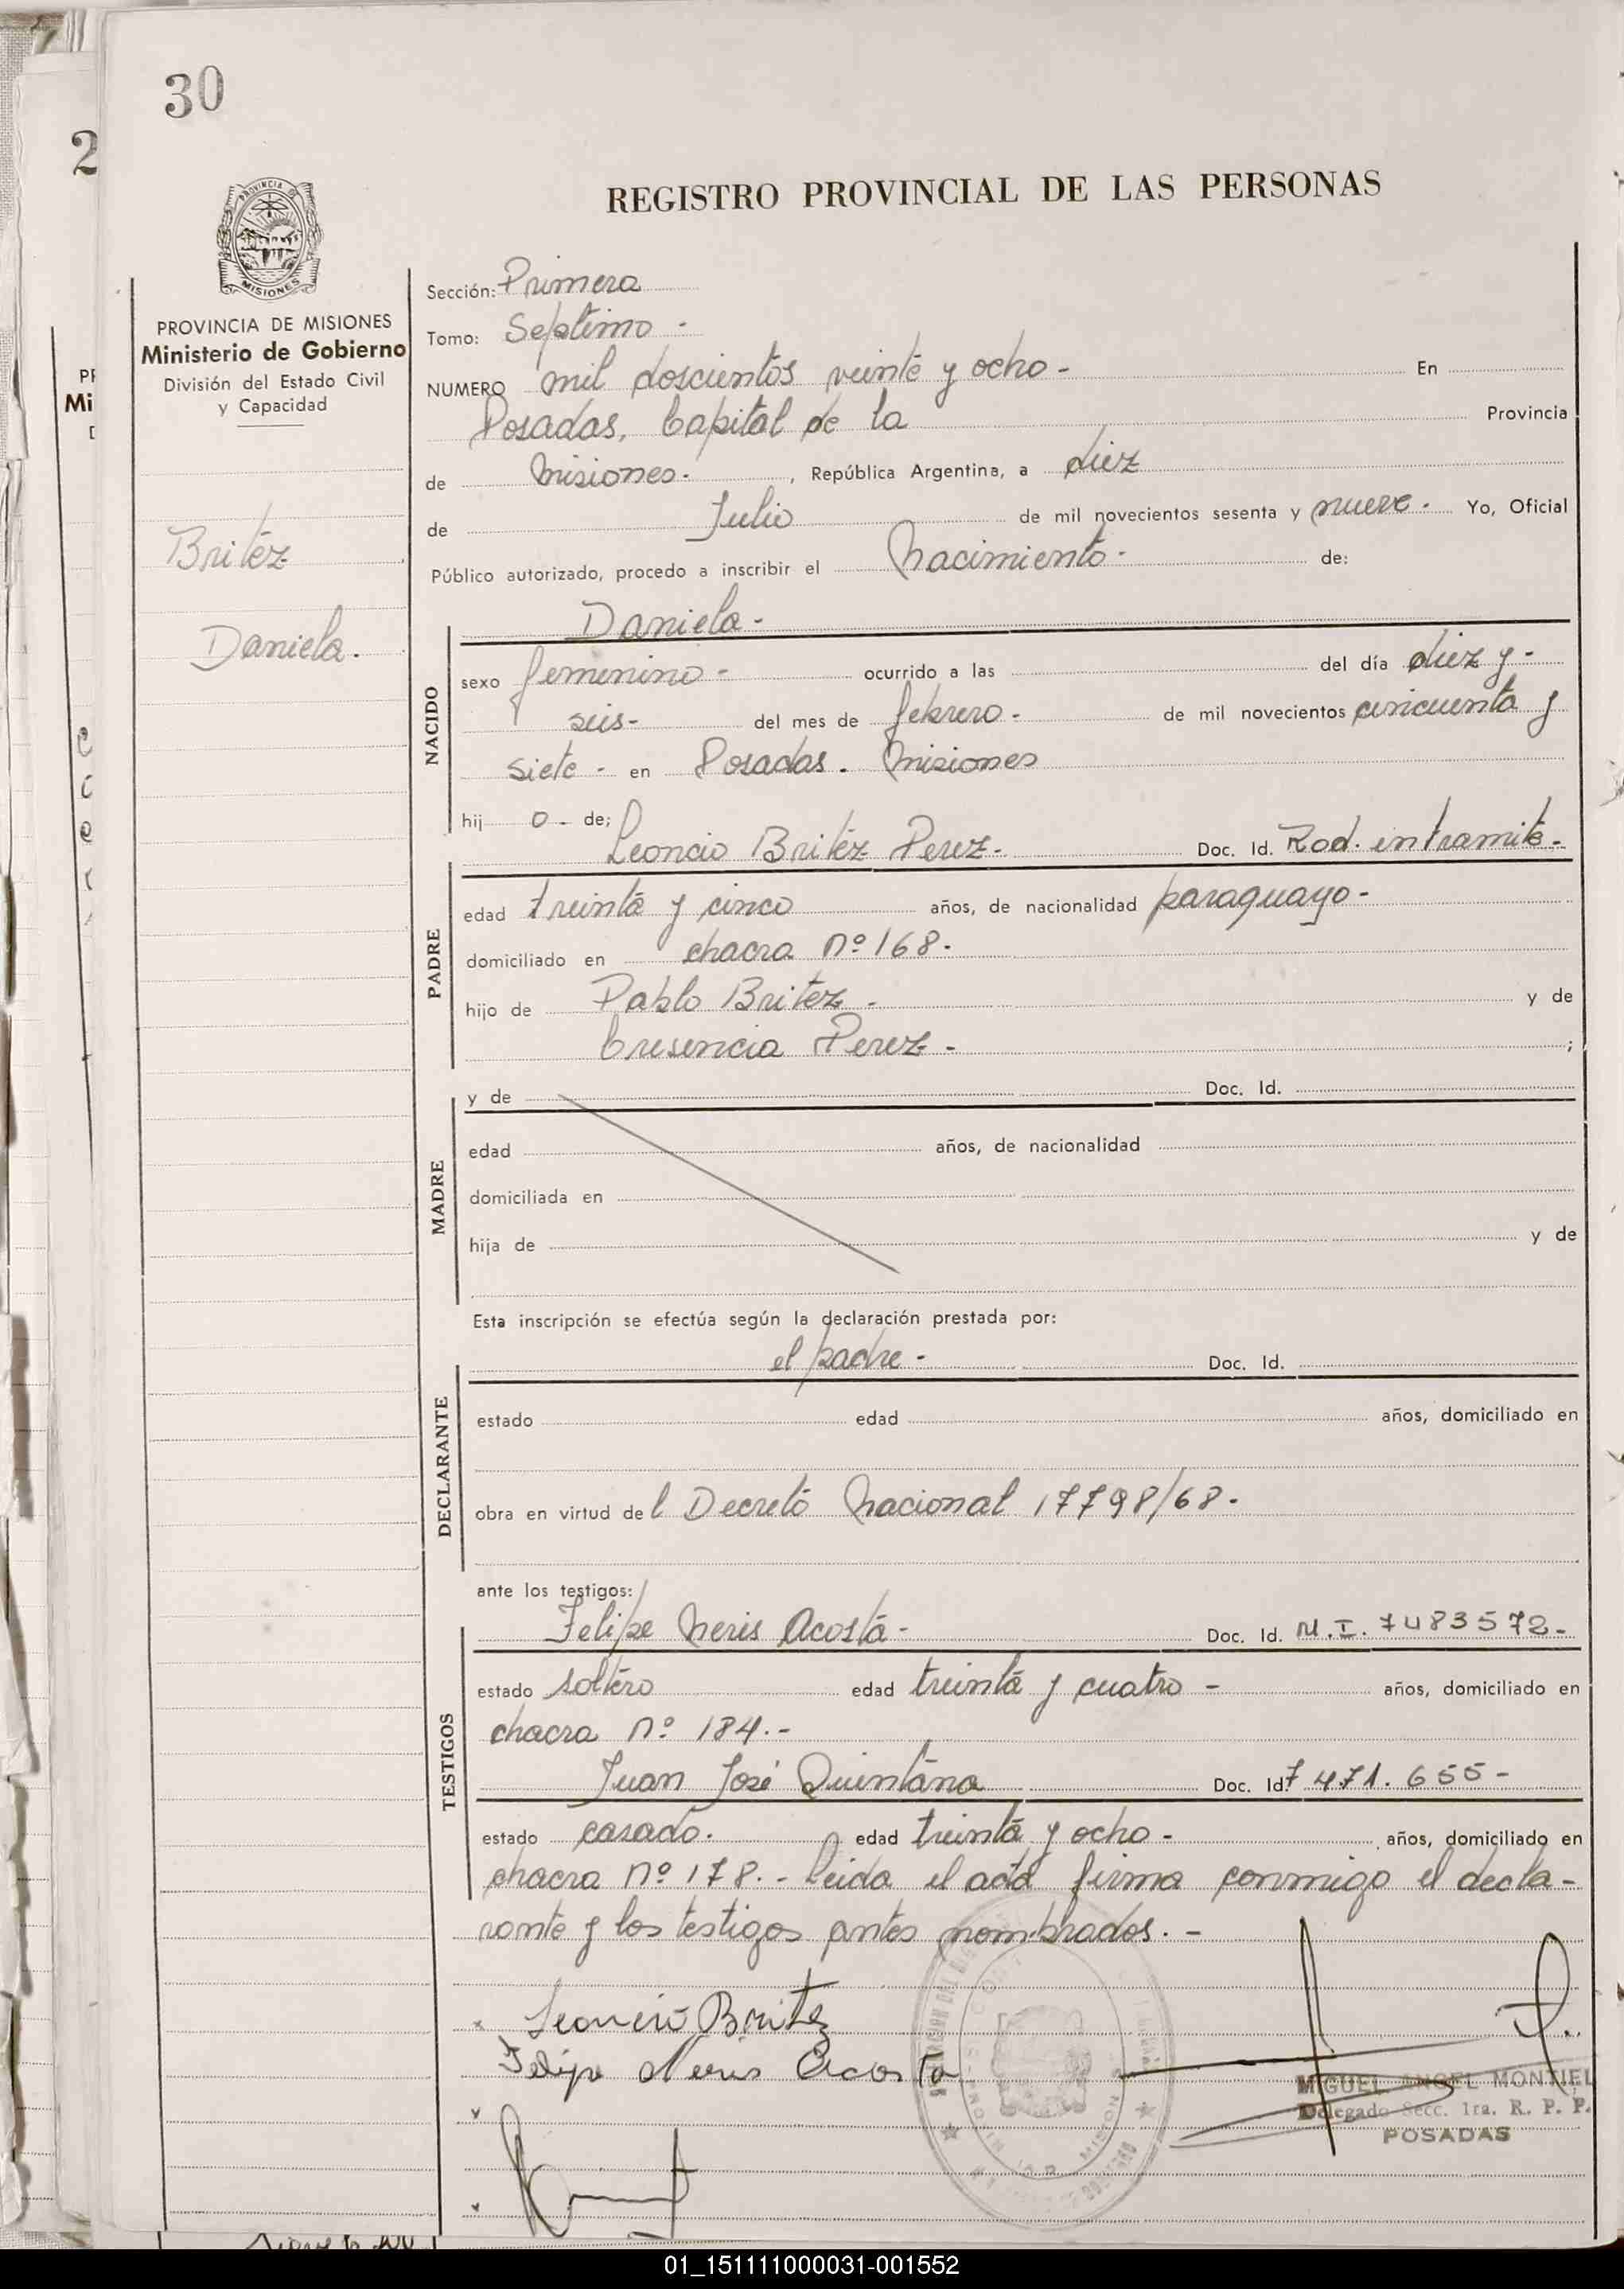 30
2
REGISTRO PROVINCIAL DE LAS PERSONAS
PROVINCIA DE
MISIONES
PROVINCIA DE MISIONES
Ministerio de Gobierno
División del Estado Civil
y Capacidad
Britez
Daniela.
Sección: Primera
Tomo: Septimo -
NUMERO mil doscientos veinte y ocho - En
Posadas, Capital de la Provincia
de Misiones. , República Argentina, a diez
de Julio de mil novecientos sesenta y nueve. Yo, Oficial
Público autorizado, procedo a inscribir el Nacimiento - de:
Daniela -
NACIDO
sexo femenino - ocurrido a las del día diez y -
seis - del mes de febrero - de mil novecientos cincuenta y
siete - en Posadas. Misiones
hij o - de;
Leoncio Britez Perez - Doc. Id. Rad. en tramite -
PADRE
edad treinta y cinco años, de nacionalidad paraguayo -
domiciliado en chacra nº 168.
hijo de Pablo Britez - y de
Cresencia Perez - ;
MADRE
y de Doc. Id.
edad años, de nacionalidad
domiciliada en
hija de y de
Esta inscripción se efectúa según la declaración prestada por:
el padre - Doc. Id.
DECLARANTE
estado edad años, domiciliado en
obra en virtud del Decreto Nacional 17798/68.
ante los testigos:
Felipe Neris Acosta - Doc. Id. M.I. 7483572-
TESTIGOS
estado soltero edad treinta y cuatro - años, domiciliado en
chacra nº 184.-
Juan José Quintana Doc. Id 7471.655-
estado casado. edad treinta y ocho - años, domiciliado en
chacra nº 178.- Leida el acta firma conmigo el decla-
rante y los testigos antes nombrados. -
Leoncio Britez
Felipe Neris Acosta
MIGUEL ANGEL MONTIEL
Delegado Secc. 1ra. R. P. P.
POSADAS
01_151111000031-001552